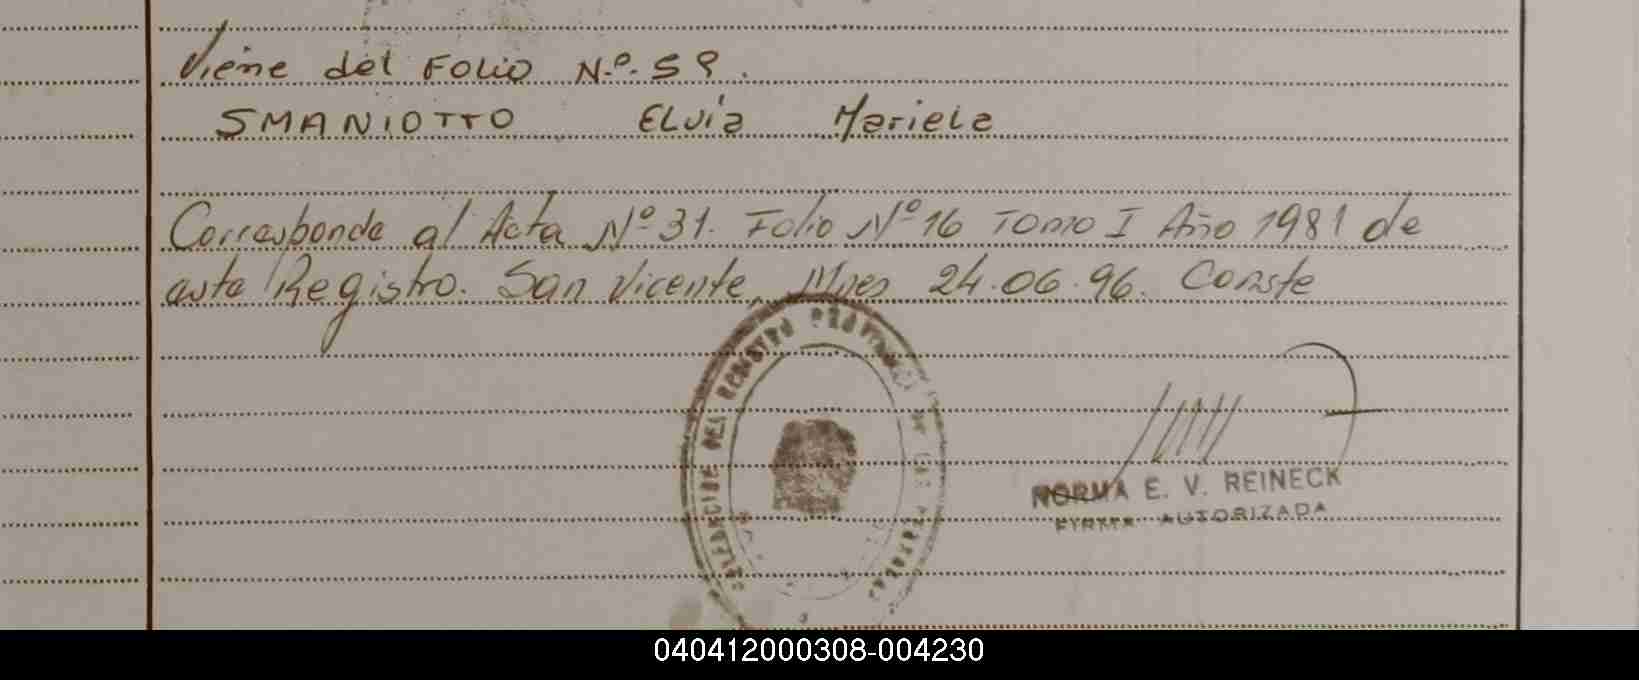 Viene del FOLIO N.º 59.
SMANIOTTO ELviA Mariela
Corresponde al Acta Nº 31. Folio Nº 16 TOMO I Año 1981 de
este Registro. San Vicente, Mnes 24.06.96. Conste
DEL REGISTRO PROVINCIAL DE LAS PERSONAS
NORMA E. V. REINECK
FIRMA AUTORIZADA
040412000308-004230